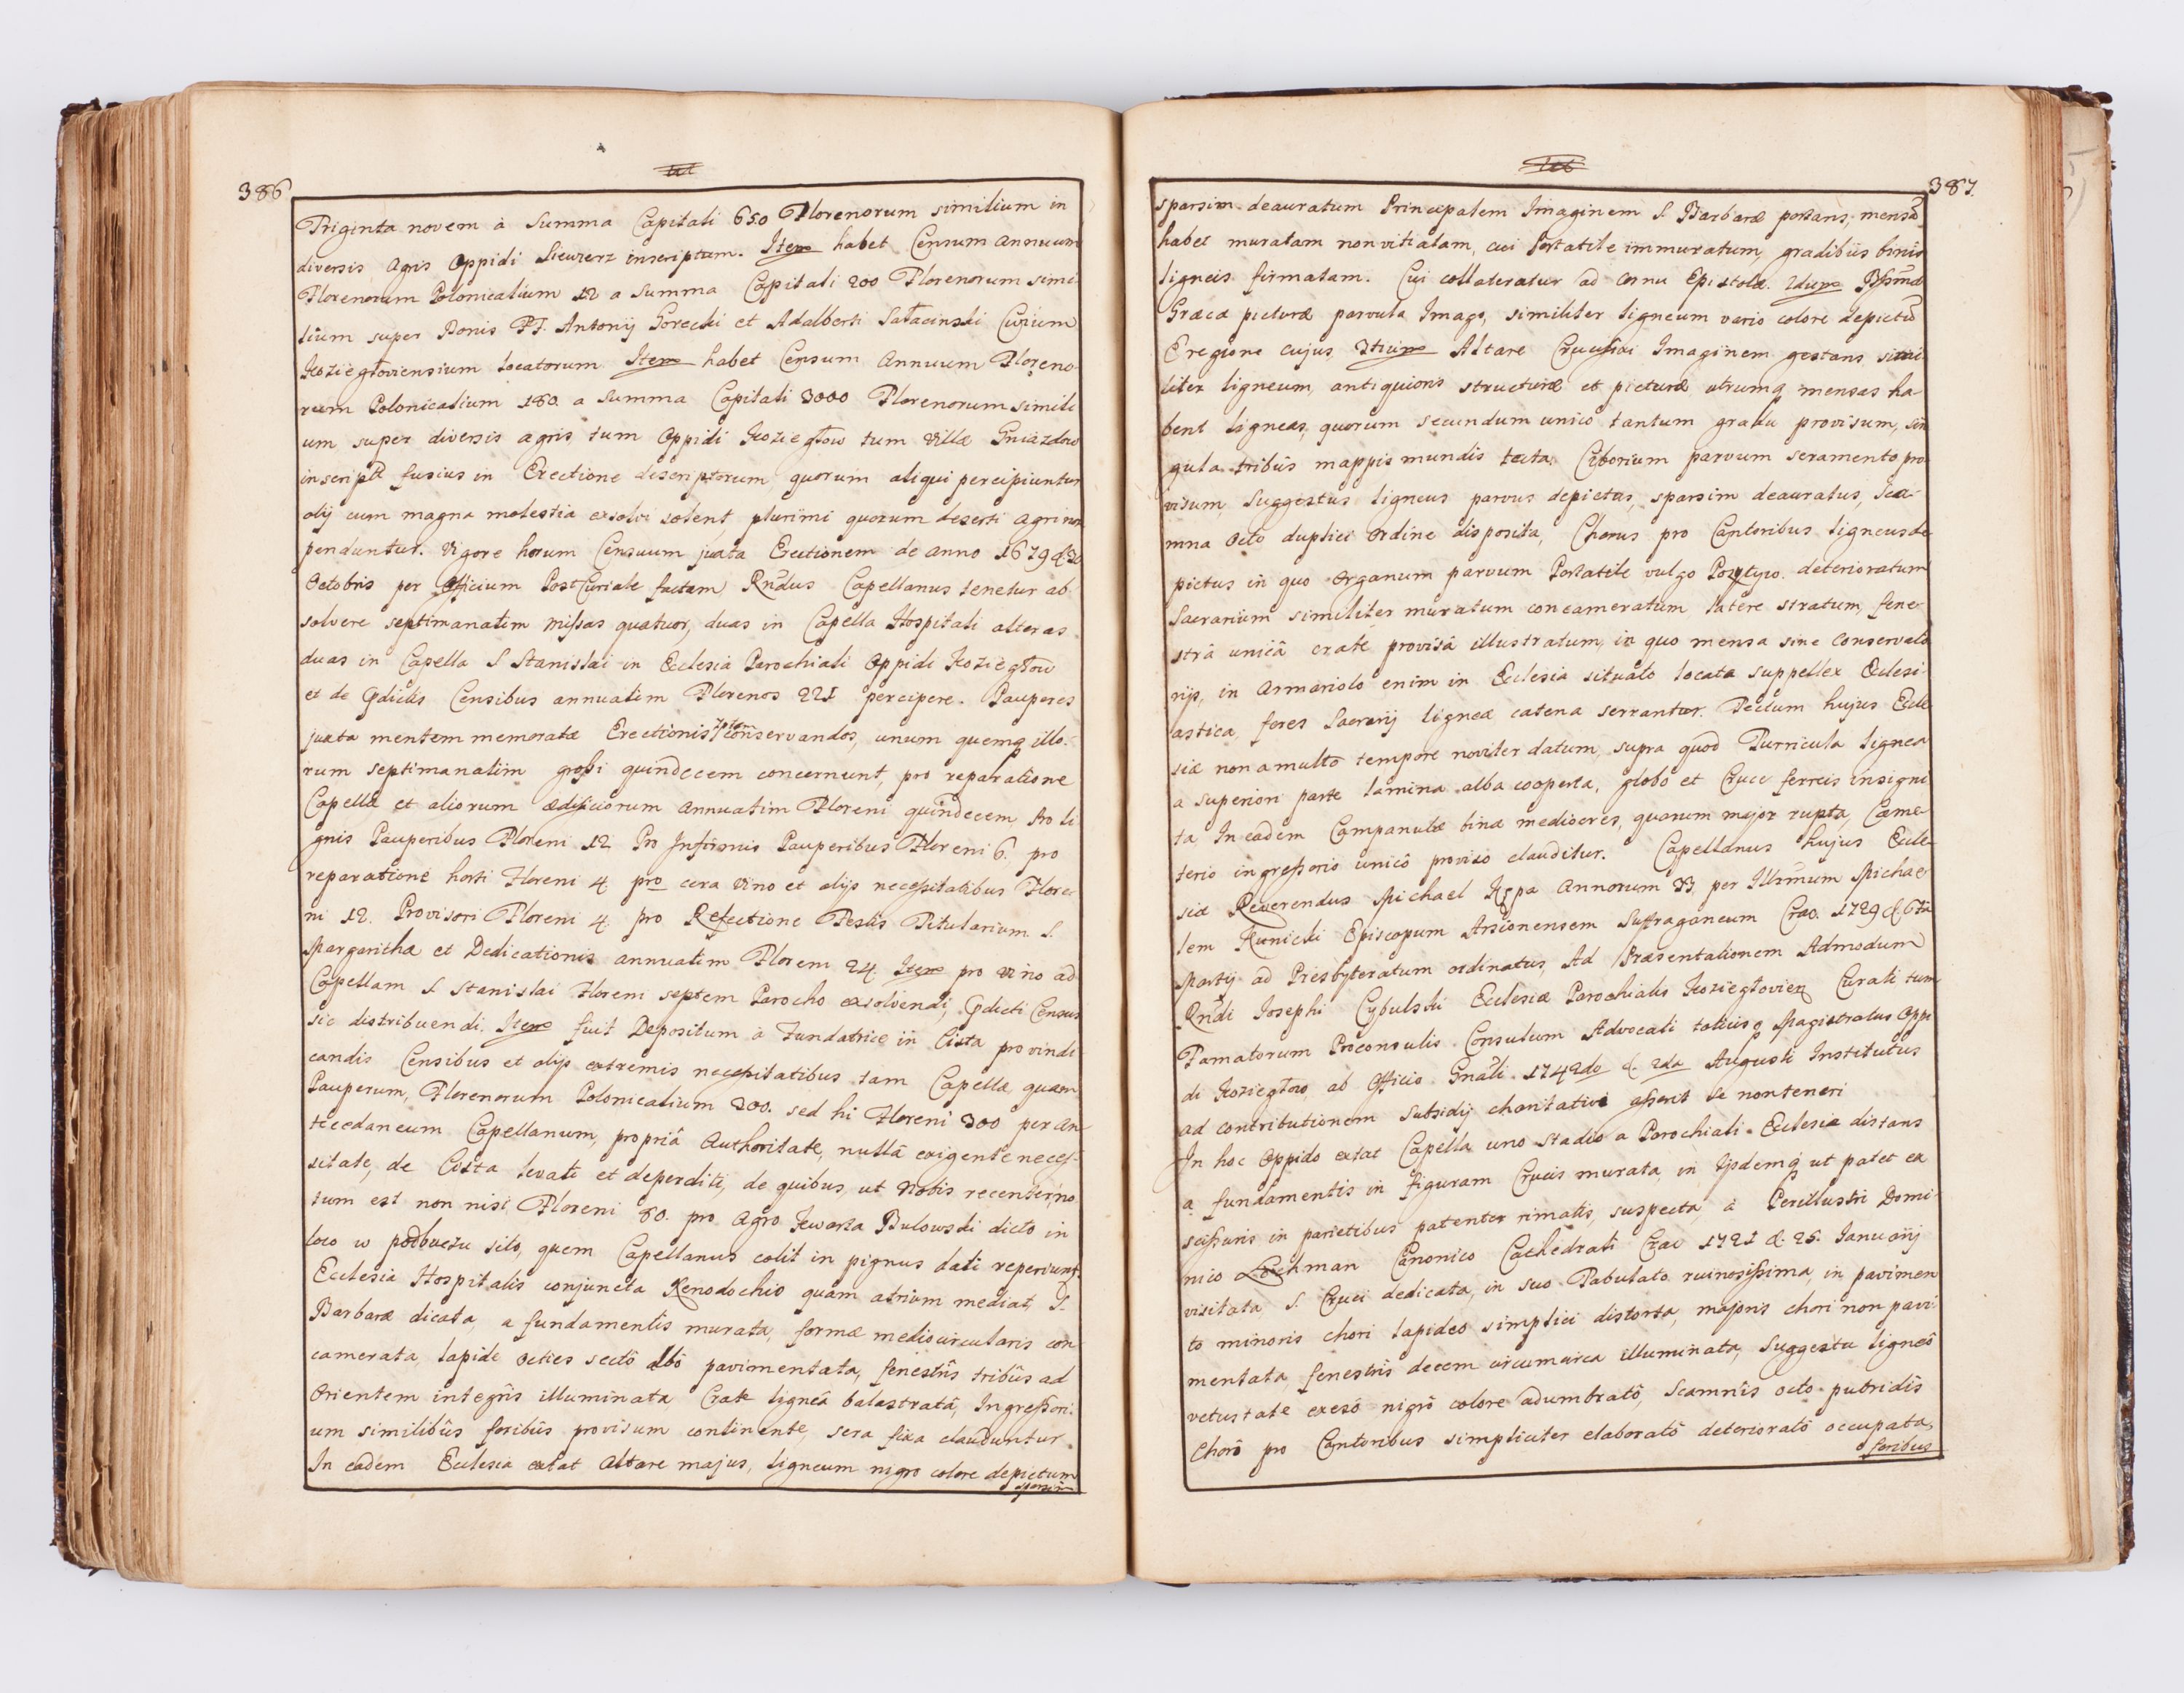 386
Triginta novem à Summa Capitali 650 Florenorum similium in
diversis Agris Oppidi Siewierz inscriptum. Item habet Censum annuum
Florenorum Polonicalium 12 a Summa Capitali 200 Florenorum simi-
lium super Bonis PP. Antonij Gorecki et Adalberti Sałacinski Civium
Koziegłoviensium locatorum Item habet Censum Annuum Floreno-
rum Polonicalium 180. a Summa Capitali 3000 Florenorum simili
um super diversis agris tum Oppidi Koziegłow tum Villæ Gniazdow
inscript fusius in Erectione descriptorum quorum aliqui percipiuntur
alij cum magna molestia exsolvi solent, plurimi quorum deserti agri non
penduntur. Vigore horum Censuum juxta Erectionem de anno 1679 d 20
Octobris per Officium Post Curiale factam Rndus Capellanus tenetur ab
solvere septimanatim Missas quatuor, duas in Capella Hospitali alteras
duas in Capella S Stanislai in Ecclesia Parochiali Oppidi Koziegłow
et de Pdictis Censibus annuatim Florenos 221 percipere. Pauperes
juxta mentem memoratæ Erectionis 7tem conservandos, unum quemq illo-
rum septimanatim grossi quindecem concernunt, pro reparatione
Capellæ et aliorum ædificiorum annuatim Floreni quindecem Pro li
gnis Pauperibus Floreni 12 Pro Infirmis Pauperibus Floreni 6. pro
reparatione horti Floreni 4 pro cera vino et alijs necessitatibus Flore-
ni 12. Provisori Floreni 4 pro Refectione Festis Titularium S.
Margarithæ et Dedicationis annuatim Floreni 24. Item pro vino ad
Capellam S Stanislai Floreni septem Parocho exsolvendi, Pdicti Census
sic distribuendi. Item fuit Depositum à Fundatrice in Cista pro vindi
candis Censibus et alijs extremis necessitatibus tam Capellæ quam
Pauperum, Florenorum Polonicalium 300. sed hi Floreni 300 per An-
tecedaneum Capellanum, propriâ Authoritate, nullâ exigente neces-
sitate, de Cista levati et deperditi, de quibus, ut Nobis recenter, no
tum est non nisi Floreni 80. pro Agro Kwarta Bulowski dicto in
loco w podbuczu sito, quem Capellanus colit in pignus dati reperiunt.
Ecclesia Hospitalis conjuncta Xenodochio quam atrium mediat, S.
Barbaræ dicata, a fundamentis murata, formæ mediocircularis con
camerata, lapide octies sectô albô pavimentata, fenestris tribûs ad
Orientem integris illuminata Crate ligneâ balastratâ, Ingressori-
um similibûs foribûs provisum continente, sera fixa clauduntur
In eadem Ecclesia extat Altare majus, ligneum nigro colore depictum
sparsim
387.
sparsim deauratum Principalem Imaginem S. Barbaræ portans, mensã
habet muratam non vitiatam, cui portatile immuratum, gradibûs binis
ligneis firmatam. Cui collateratur ad Cornu Epistolæ. 2dum Bssimæ
Græcæ picturæ parvula Imago, similiter ligneum vario colore depictũ
E regione cujus 3tium Altare Crucifixi Imaginem gestans simi
liter ligneum, antiquioris structuræ et picturæ utrumq mensas ha-
bent ligneas, quorum secundum unicô tantum gradu provisum, sin
gula tribûs mappis mundis tecta. Ciborium parvum seramento pro-
visum, Suggestus ligneus parvus depictus, sparsim deauratus, Sca-
mna Octo duplici ordine disposita, Chorus pro Cantoribus ligneus de
pictus in quo Organum parvum Portatile vulgo Pozytyw. deterioratum
Sacrarium similiter muratum concameratum latere stratum, fene-
strâ unicâ crate provisâ illustratum, in quo mensa sine Conservato
rijs, in Armariolo enim in Ecclesia situato locata suppellex Ecclesi-
astica, fores Sacrarij ligneæ catena serrantur. Tectum hujus Eccle
siæ non a multo tempore noviter datum, supra quod Turricula lignea
a superiori parte lamina alba cooperta, globo et Cruce ferreis insigni
ta, In eadem Campanulæ binæ mediocres, quarum major rupta, Cæme-
terio ingressorio unicô proviso clauditur. Capellanus hujus Eccle-
siæ Reverendus Michael Kępa Annorum 33 per Illrmum Michae-
lem Kunicki Episcopum Arsionensem Suffraganeum Crac. 1729 d. 6ta
Martij ad Presbyteratum ordinatus, Ad Præsentationem Admodum
Rndi Josephi Cybulski Ecclesiæ Parochialis Koziegłovien Curati tum
Famatorum Proconsulis Consulum Advocati totiusq Magistratus Oppi
di Koziegłow, ab Officio Gnali 1742do d. 2da Augusti Institutus
ad contributionem Subsidij charitativi asserit se non teneri
In hoc Oppido extat Capella uno stadio a Parochiali Ecclesia distans
a fundamentis in figuram Crucis murata, in Ipsdemq ut patet ex
scissuris in parietibus patenter rimatis, suspecta, à Perillustri Domi-
nico Lochman Canonico Cathedrali Crac 1721 d. 25. Ianuarij
visitata, S. Cruci dedicata, in suo Tabulato ruinosissima, in pavimen
to minoris chori lapideo simplici distorta, majoris chori non pavi-
mentata, fenestris decem circumcirca illuminata, Suggestu ligneô
vetustate exesô nigrô colore adumbratô, Scamnis octo putridis
Chorô pro Cantoribus simpliciter elaboratô deterioratô occupata,
foribus